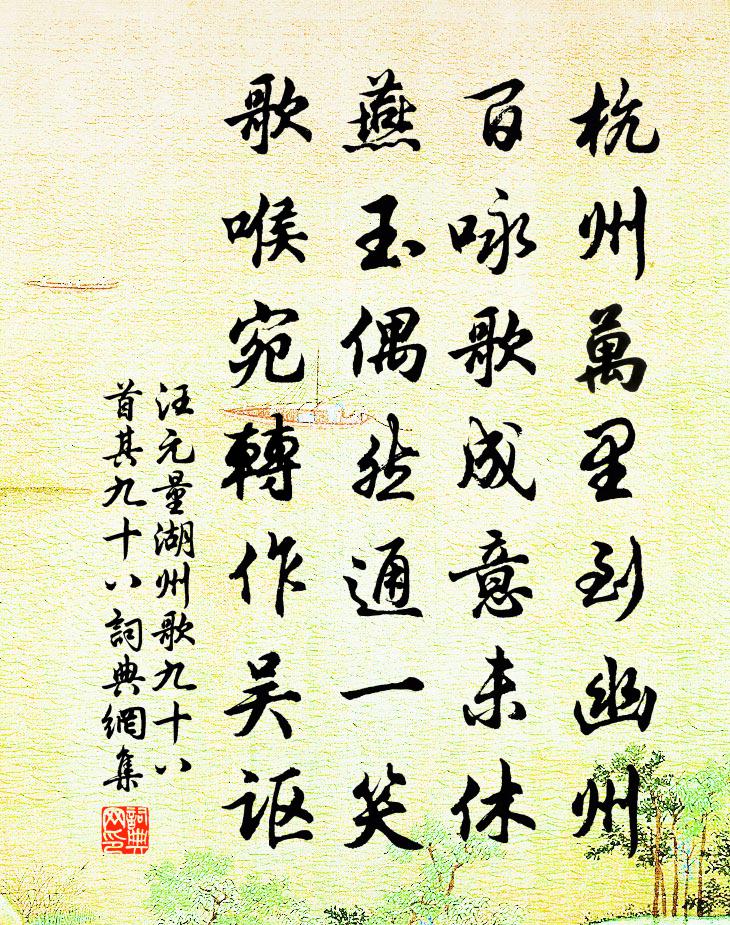 杭州萬里到幽州
百咏歌成意未休
燕玉偶然通一笑
歌喉宛轉作吴讴
汪元量湖州歌九十八
首其九十八詞典網集
詞典网印